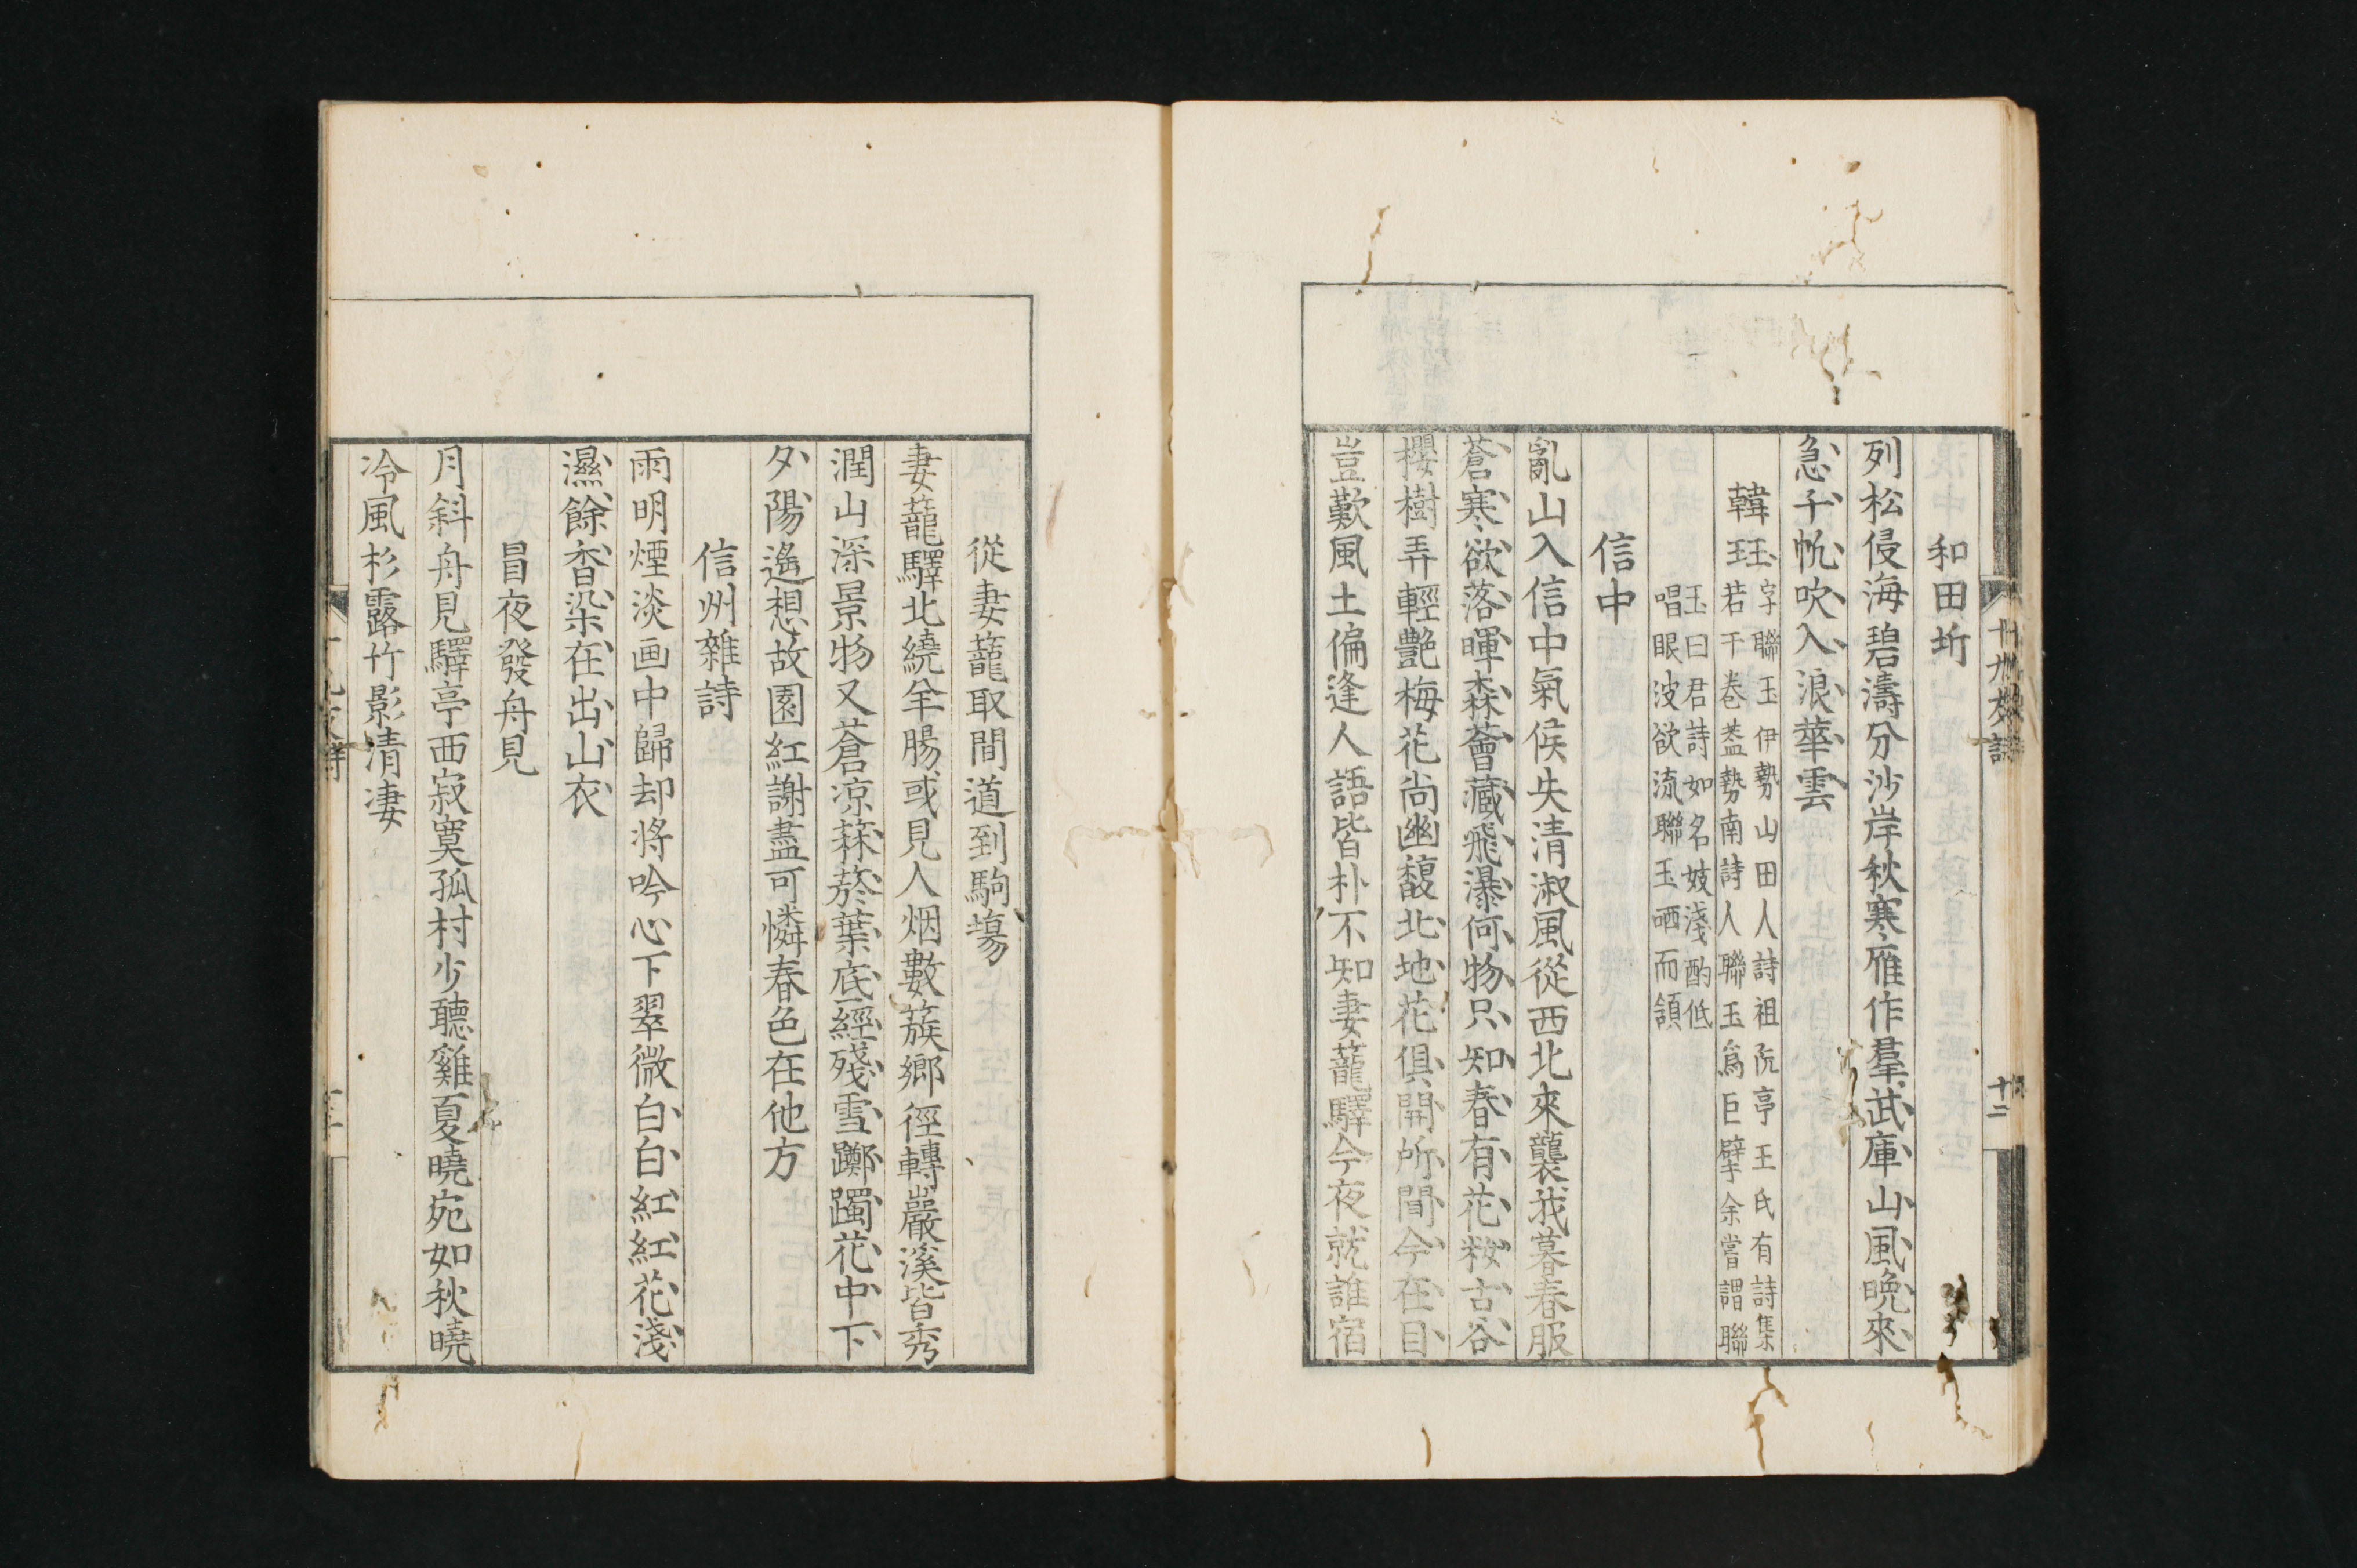 和田圻
列松侵海碧濤分沙岸秋寒雁作羣武庫山風晩來
急千帆吹入浪華雲
韓珏字聯玉伊勢山田人詩祖阮亭王氏有詩集
若干卷盖勢南詩人聯玉爲巨擘余嘗謂聯
玉曰君詩如名妓淺酌低
唱眼波欲流聯玉哂而頷
信中
亂山入信中氣候失清淑風從西北來襲我暮春服
蒼寒欲落暉森薈藏飛瀑何物只知春有花粧古谷
櫻樹弄輕艷梅花尚幽馥北地花俱開所間今在目
豈歎風土偏逢人語皆朴不知妻蘢驛今夜就誰宿
十二
從妻蘢取間道到駒塲
妻蘢驛北繞羊腸或見人烟數簇鄉徑轉巖溪皆秀
潤山深景物又蒼凉蒜葱葉底經殘雪躑躅花中下
夕陽遙想故園紅謝盡可憐春色在他方
信州雜詩
雨明煙淡画中歸却將吟心下翠微白白紅紅花淺
濕餘香染在出山衣
冒夜發舟見
月斜舟見驛亭西寂寞孤村少聽雞夏曉宛如秋曉
冷風杉露竹影清凄